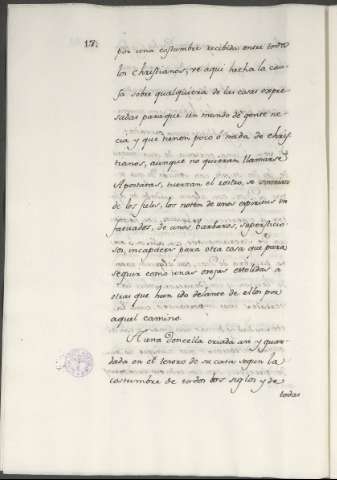 17.
por una costumbre recibida entre todos
los Christianos, ve aqui hecha la cau-
sa sobre qualquiera de las cosas expre-
sadas para que un mundo de gente ne-
cia y que tienen poco ó nada de chris-
tianos, aunque no quieran llamarse
Apostatas, tuerzan el rostro, se
de los fieles, los noten de unos espiritus in-
fatuados, de unos barbaros, supersticio-
sos, incapaces para otra cosa que para
seguir como unas ovejas estolidas a
otras que han ido delante de ellos por
aquel camino.
A una Doncella criada an y guar-
dada en el retrete de su casa segun la
costumbre de todos los siglos y de
todas